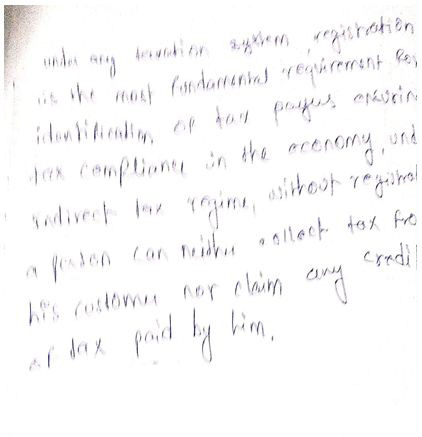 under any taxation system, registration
is the most fundamental requirement for
identification of tax payers ensurin
tax compliance in the economy, und
indirect tax regime, without registrat
a person can neither collect tax fro
his customer nor claim any credi
of tax paid by him.